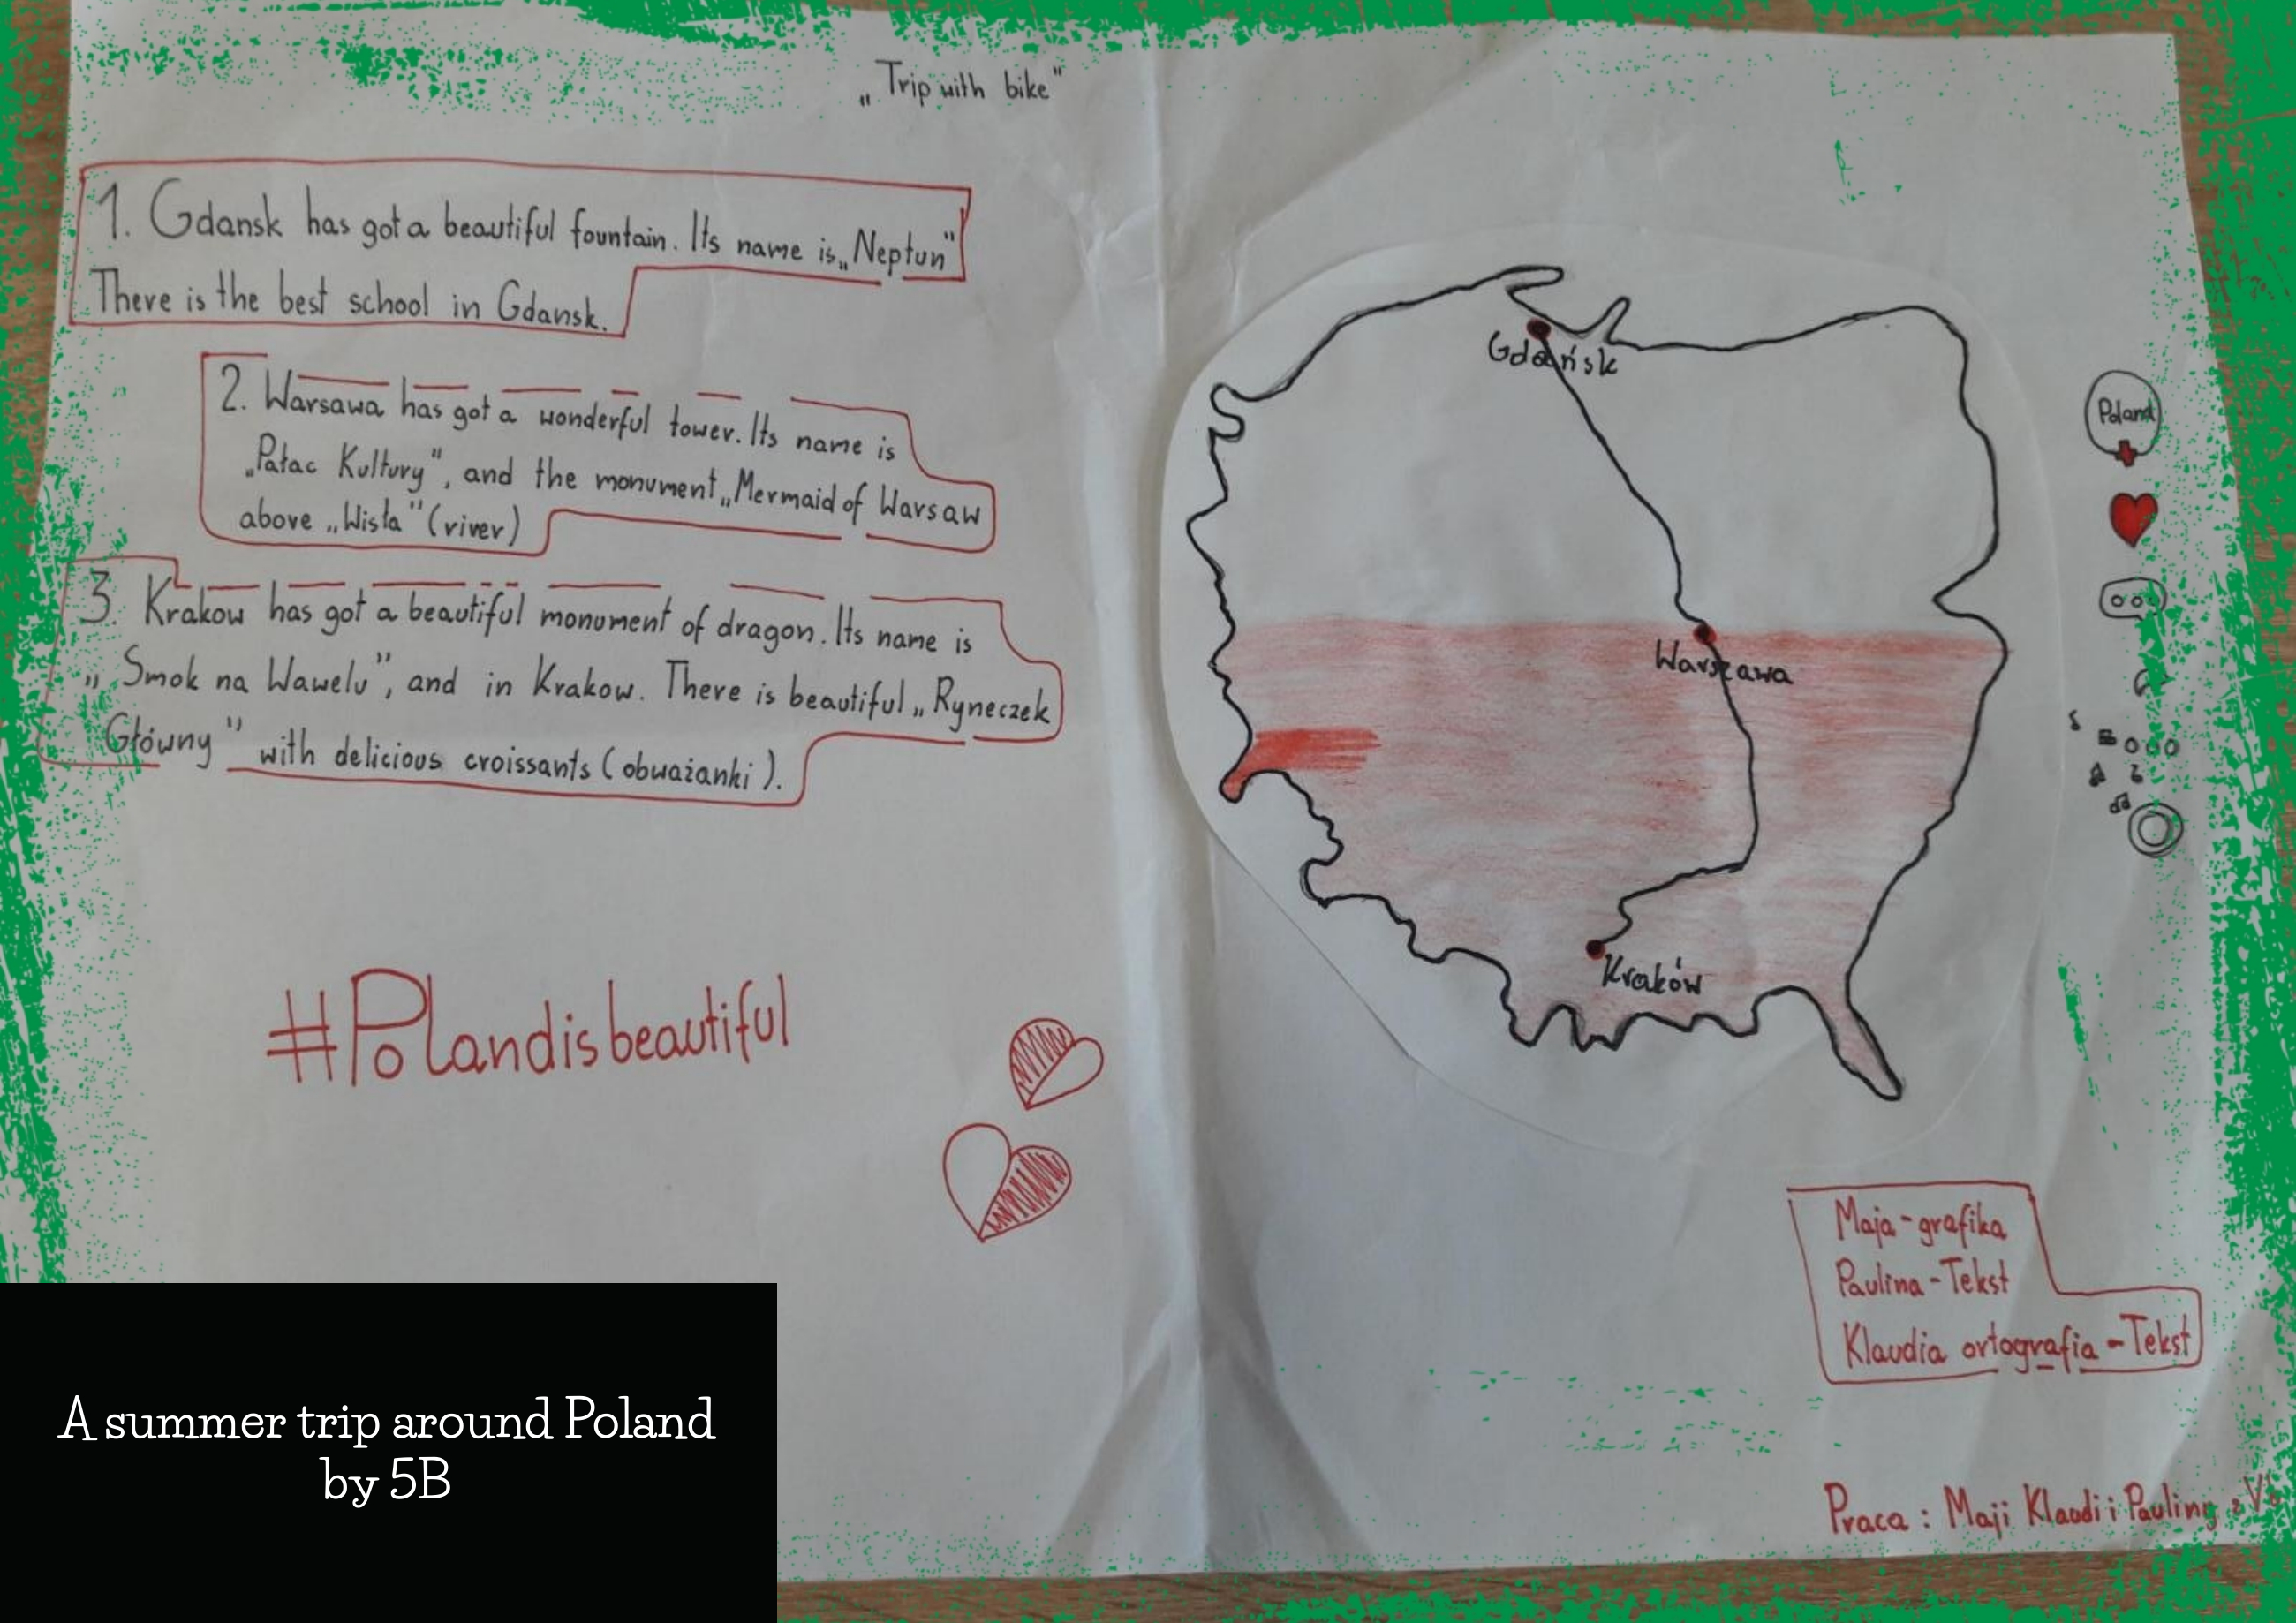 „Trip with bike"
1. Gdansk has got a beautiful fountain. Its name is „Neptun"
There is the best school in Gdansk.
2. Warsawa has got a wonderful tower. Its name is
„Pałac Kultury", and the monument „Mermaid of Warsaw
above „Wisła" (river)
3. Krakow has got a beautiful monument of dragon. Its name is
„Smok na Wawelu", and in Krakow. There is beautiful „Ryneczek
Główny" with delicious croissants (obważanki).
#Polandisbeautiful
Gdańsk
Warszawa
Kraków
Poland
Maja-grafika
Paulina-Tekst
Klaudia ortografia-Tekst
Praca: Maji Klaudi i Pauliny
A summer trip around Poland
by 5B